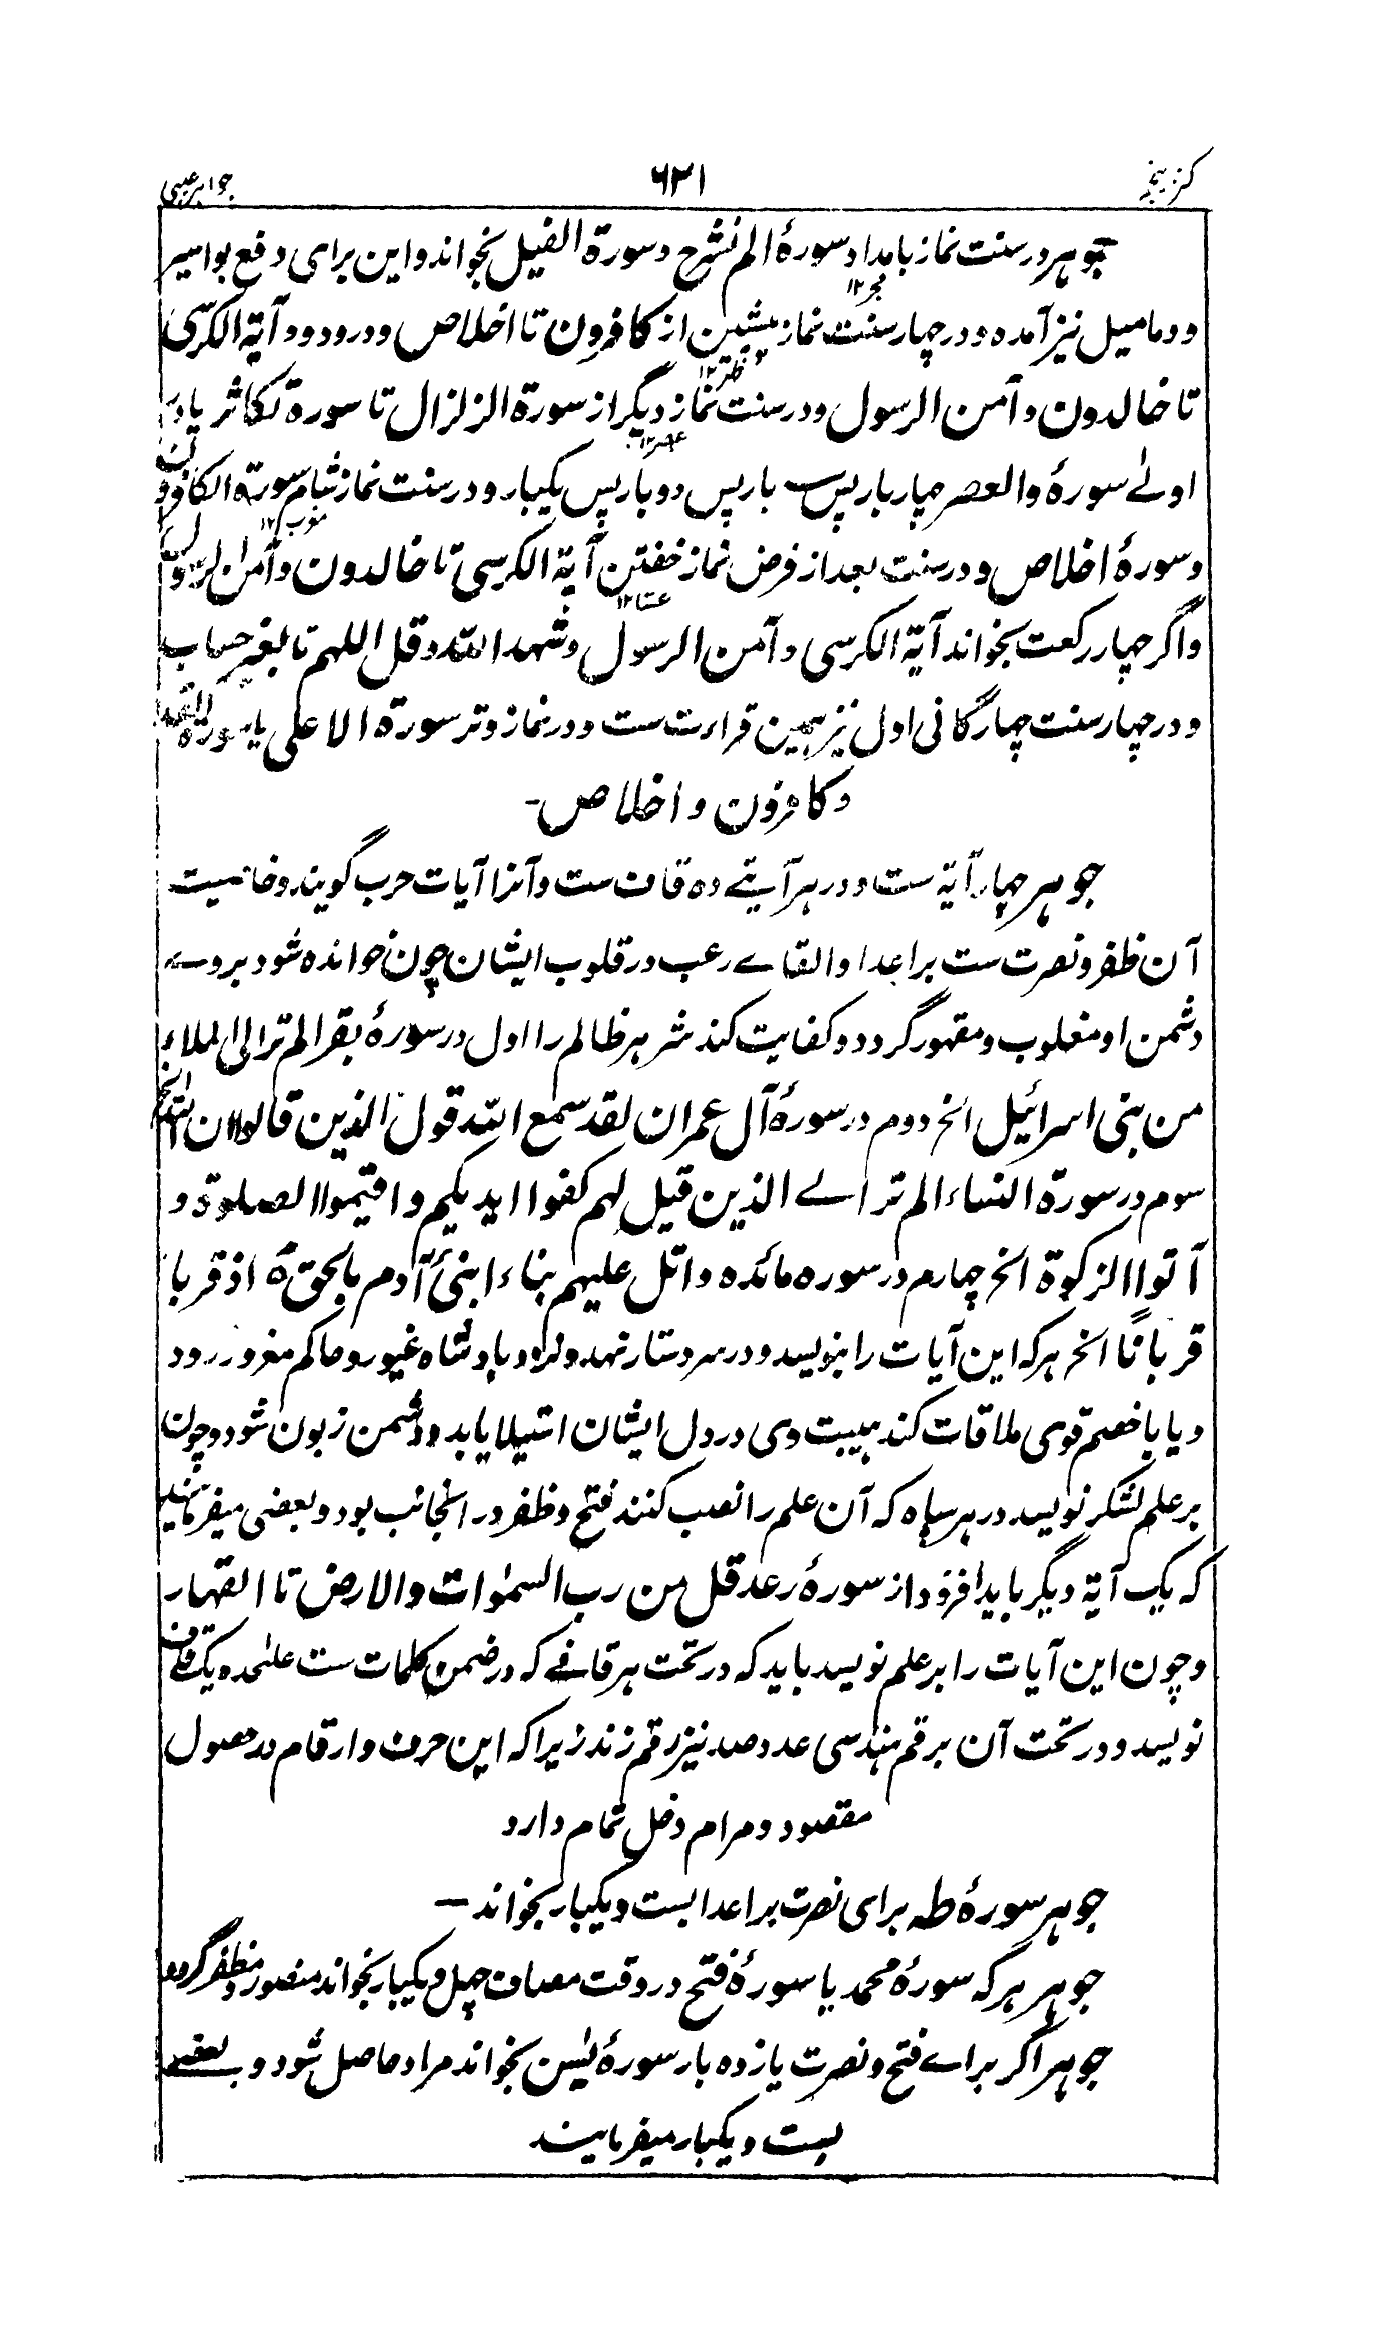 کنز پنجم ۶۳۱ جواهر غیبی
جوهر در سنت نماز بامداد سورهٔ الم نشرح و سورة الفیل بخواند و این برای دفع بواسیر
فجر۱۲
و دمامیل نیز آمده و در چهار سنت نماز پیشین از کافرون تا اخلاص و درود و و آیة الکرسی
ظهر۱۲
تا خالدون و آمن الرسول و در سنت نماز دیگر از سورة الزلزال تا سورة تکاثر یا در
عصر۱۲
اولے سورهٔ والعصر چهار بار پس سه بار پس دو بار پس یکبار و در سنت نماز شام سورة الکافرون
مغرب۱۲
و سورهٔ اخلاص و در سنت بعد از فرض نماز خفتن آیة الکرسی تا خالدون و آمن الرسول
عشا۱۲
و اگر چهار رکعت بخواند آیة الکرسی و آمن الرسول و شهد الله و قل اللهم تا بغیر حساب
و در چهار سنت چهارگانی اول نیز همین قراءت ست و در نماز وتر سورة الاعلی یا سورة القدر
و کافرون و اخلاص -
جوهر چهار آیة ست و در هر آیتے ده قاف ست و آنرا آیات حرب گویند و خاصیت
آن ظفر و نصرت ست بر اعدا و القاے رعب در قلوب ایشان چون خوانده شود بروے
دشمن او مغلوب و مقهور گردد و کفایت کند شر هر ظالم را اول در سورهٔ بقر الم تر الی الملاء
من بنی اسرائیل الخ دوم در سورهٔ آل عمران لقد سمع الله قول الذین قالوا ان الله الخ
سوم در سورة النساء الم تر الے الذین قیل لهم کفوا ایدیکم و اقیموا الصلوة و
آتوا الزکوة الخ چهارم در سوره مائده و اتل علیهم نباء ابنیٔ آدم بالحق ۀ اذ قربا
قربانًا الخ هر که این آیات را بنویسد و در سر دستار نهد و نزد پادشاه غیور و حاکم مغرور رود
و یا با خصم قوی ملاقات کند هیبت وی در دل ایشان استیلا یابد و دشمن زبون شود و چون
بر علم لشکر نویسد در هر سپاه که آن علم را نصب کنند فتح و ظفر در انجانب بود و بعضی میفرمایند
که یک آیة دیگر باید افزود از سورهٔ رعد قل من رب السمٰوات والارض تا القهار
و چون این آیات را بر علم نویسد باید که در تحت هر قافے که در ضمن کلمات ست علٰحده یک قاف
نویسد و در تحت آن برقم هندسی عدد صد نیز رقم زند زیرا که این حرف و ارقام در حصول
مقصود و مرام دخل تمام دارد
جوهر سورهٔ طه برای نصرت بر اعدا بست و یکبار بخواند —
جوهر هر که سورهٔ محمد یا سورهٔ فتح در وقت مصاف چهل و یکبار بخواند منصور و مظفر گردد
جوهر اگر براے فتح و نصرت یازده بار سورهٔ یٰسین بخواند مراد حاصل شود و بعضے
بست و یکبار میفرمایند